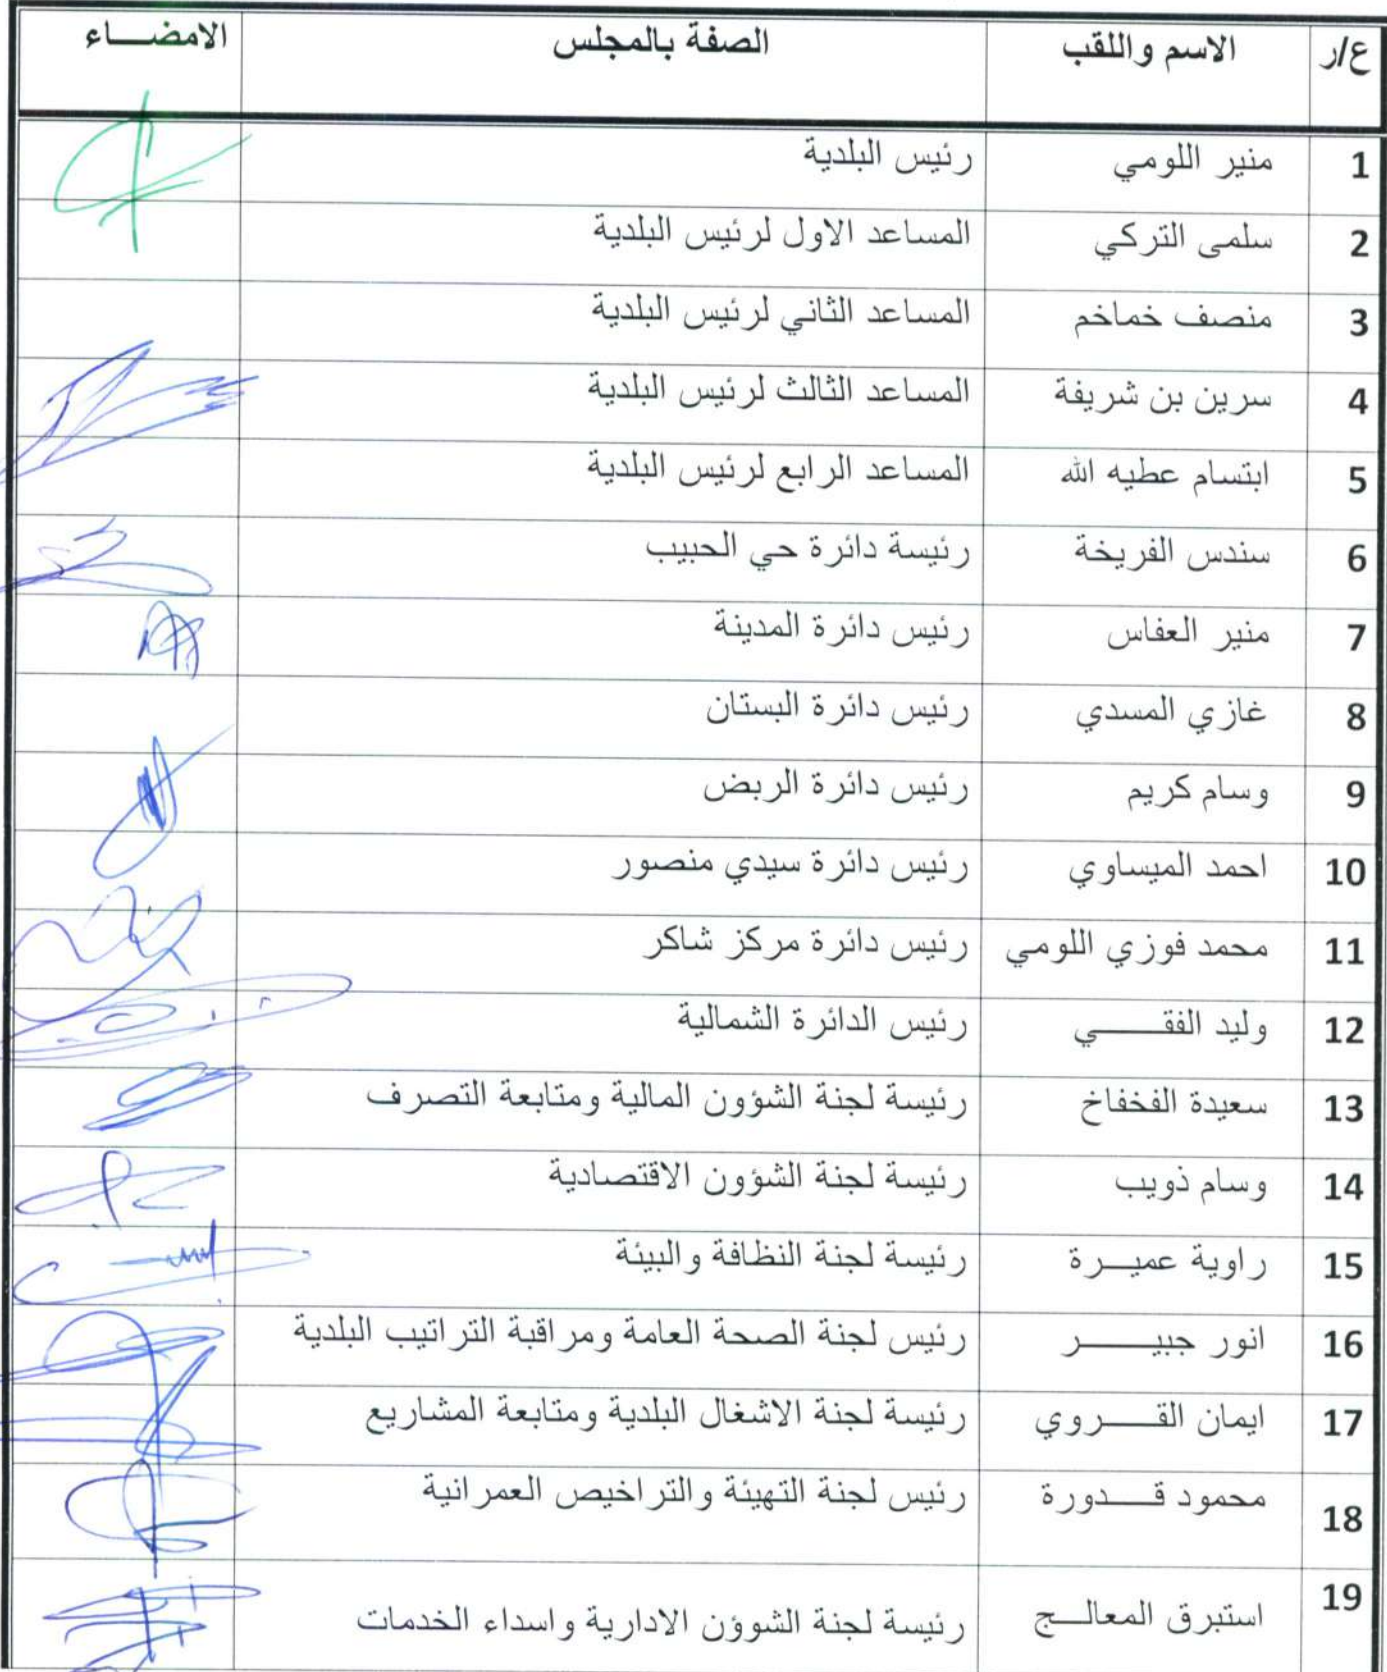 ع/ر الاسم واللقب الصفة بالمجلس الامضـــاء
1 منير اللومي رئيس البلدية
2 سلمى التركي المساعد الاول لرئيس البلدية
3 منصف خماخم المساعد الثاني لرئيس البلدية
4 سرين بن شريفة المساعد الثالث لرئيس البلدية
5 ابتسام عطيه الله المساعد الرابع لرئيس البلدية
6 سندس الفريخة رئيسة دائرة حي الحبيب
7 منير العفاس رئيس دائرة المدينة
8 غازي المسدي رئيس دائرة البستان
9 وسام كريم رئيس دائرة الربض
10 احمد الميساوي رئيس دائرة سيدي منصور
11 محمد فوزي اللومي رئيس دائرة مركز شاكر
12 وليد الفقـــــي رئيس الدائرة الشمالية
13 سعيدة الفخفاخ رئيسة لجنة الشؤون المالية ومتابعة التصرف
14 وسام ذويب رئيسة لجنة الشؤون الاقتصادية
15 راوية عميـــرة رئيسة لجنة النظافة والبيئة
16 انور جبيـــــر رئيس لجنة الصحة العامة ومراقبة التراتيب البلدية
17 ايمان القـــــروي رئيسة لجنة الاشغال البلدية ومتابعة المشاريع
18 محمود قـــــدورة رئيس لجنة التهيئة والتراخيص العمرانية
19 استبرق المعالـــج رئيسة لجنة الشوؤن الادارية واسداء الخدمات